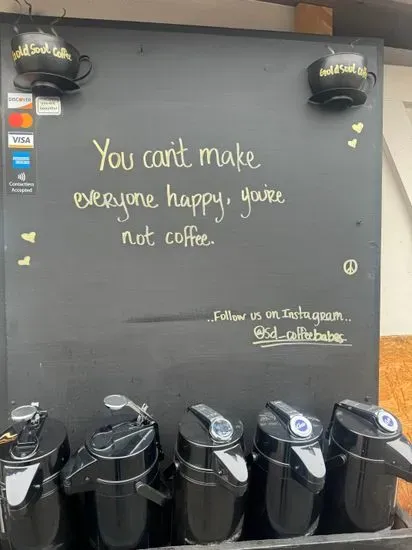 Gold Soul Coffee
Gold Soul
DISCOVER
VISA
Contactless
Accepted
You can't make
everyone happy, you're
not coffee.
..Follow us on Instagram..
@sd_coffeebabes